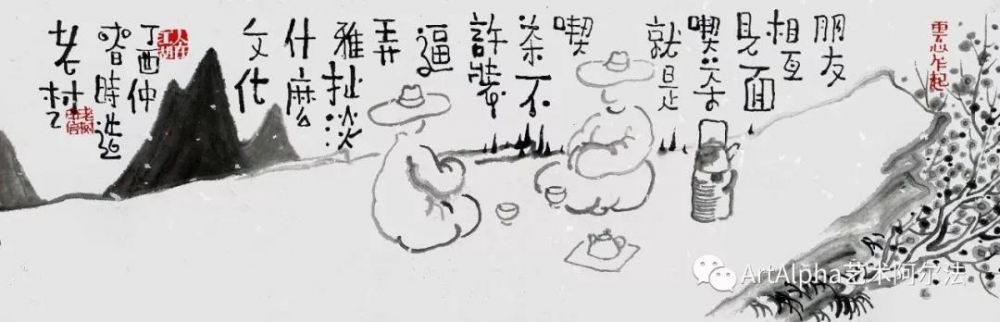 雲心乍起
朋友
相互
見面
喫茶
就是
喫
茶不
許裝
逼弄
雅扯淡
什麼
文化
人在江湖
丁酉仲
春時造
老树
ArtAlpha艺术阿尔法